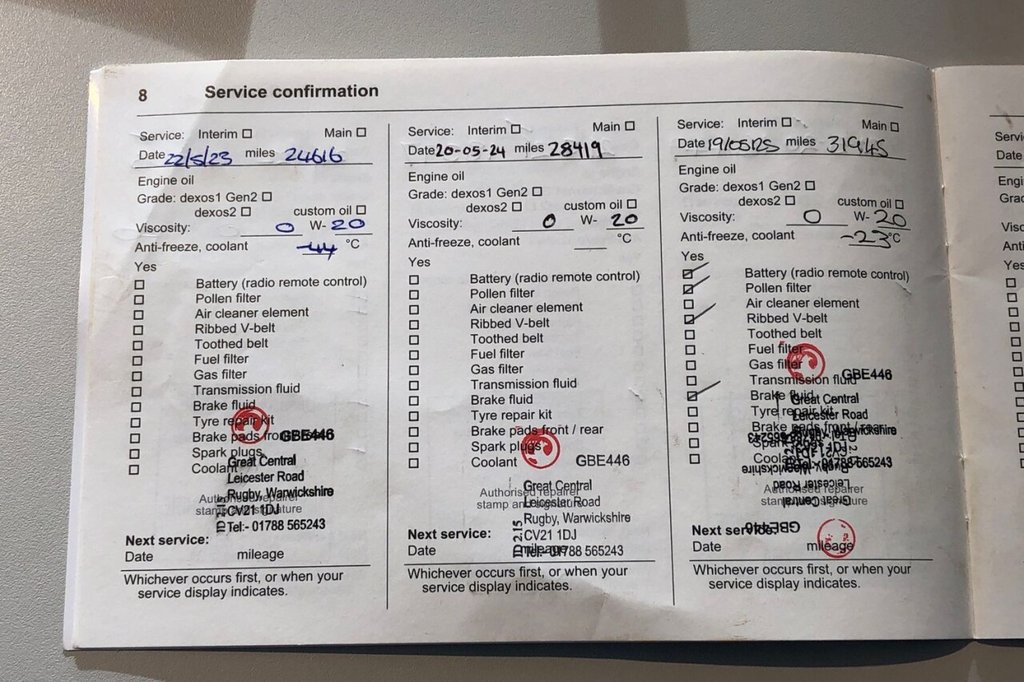 8 Service confirmation
Service: Interim ☐ Main ☐
Date 22/5/23 miles 24616
Engine oil
Grade: dexos1 Gen2 ☐
dexos2 ☐ custom oil ☐
Viscosity: 0 W- 20
Anti-freeze, coolant -44 °C
Yes
☐ Battery (radio remote control)
☐ Pollen filter
☐ Air cleaner element
☐ Ribbed V-belt
☐ Toothed belt
☐ Fuel filter
☐ Gas filter
☐ Transmission fluid
☐ Brake fluid
☐ Tyre repair kit
☐ Brake pads front GBE446
☐ Spark plugs
☐ Coolant
Great Central
Leicester Road
Rugby, Warwickshire
CV21 1DJ
Tel:- 01788 565243
Authorised repairer
stamp and signature
Next service:
Date mileage
Whichever occurs first, or when your
service display indicates.
Service: Interim ☐ Main ☐
Date 20-05-24 miles 28419
Engine oil
Grade: dexos1 Gen2 ☐
dexos2 ☐ custom oil ☐
Viscosity: 0 W- 20
Anti-freeze, coolant °C
Yes
☐ Battery (radio remote control)
☐ Pollen filter
☐ Air cleaner element
☐ Ribbed V-belt
☐ Toothed belt
☐ Fuel filter
☐ Gas filter
☐ Transmission fluid
☐ Brake fluid
☐ Tyre repair kit
☐ Brake pads front / rear
☐ Spark plugs
☐ Coolant GBE446
Great Central
Leicester Road
Rugby, Warwickshire
CV21 1DJ
Tel:- 01788 565243
ID2.15
Authorised repairer
stamp and signature
Next service:
Date mileage
Whichever occurs first, or when your
service display indicates.
Service: Interim ☐ Main ☐
Date 19/05/25 miles 31945
Engine oil
Grade: dexos1 Gen2 ☐
dexos2 ☐ custom oil ☐
Viscosity: 0 W- 20
Anti-freeze, coolant -23 °C
Yes
☑ Battery (radio remote control)
☑ Pollen filter
☐ Air cleaner element
☑ Ribbed V-belt
☐ Toothed belt
☐ Fuel filter
☐ Gas filter
☐ Transmission fluid GBE446
☑ Brake fluid
☐ Tyre repair kit
☐ Brake pads front / rear
☐ Spark plugs
☐ Coolant
Great Central
Leicester Road
Rugby, Warwickshire
CV21 1DJ
Tel:- 01788 565243
Great Central
Leicester Road
GBE446
Authorised repairer
stamp and signature
Next service:
Date mileage
Whichever occurs first, or when your
service display indicates.
Servi
Date
Engi
Grad
Visc
Anti
Yes